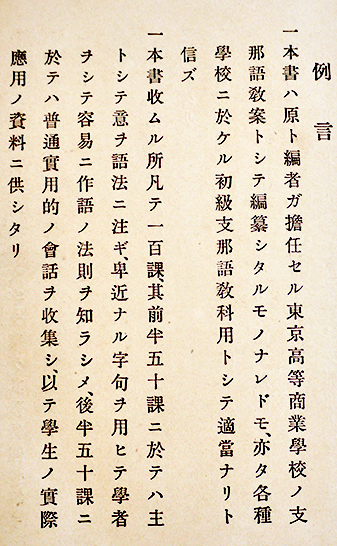 例言
一本書ハ原ト編者ガ擔任セル東京高等商業學校ノ支
那語敎案トシテ編纂シタルモノナレドモ、亦タ各種
學校ニ於ケル初級支那語敎科用トシテ適當ナリト
信ズ
一本書收ムル所凡テ一百課、其前半五十課ニ於テハ主
トシテ意ヲ語法ニ注ギ、卑近ナル字句ヲ用ヒテ學者
ヲシテ容易ニ作語ノ法則ヲ知ラシメ、後半五十課ニ
於テハ普通實用的ノ會話ヲ收集シ、以テ學生ノ實際
應用ノ資料ニ供シタリ